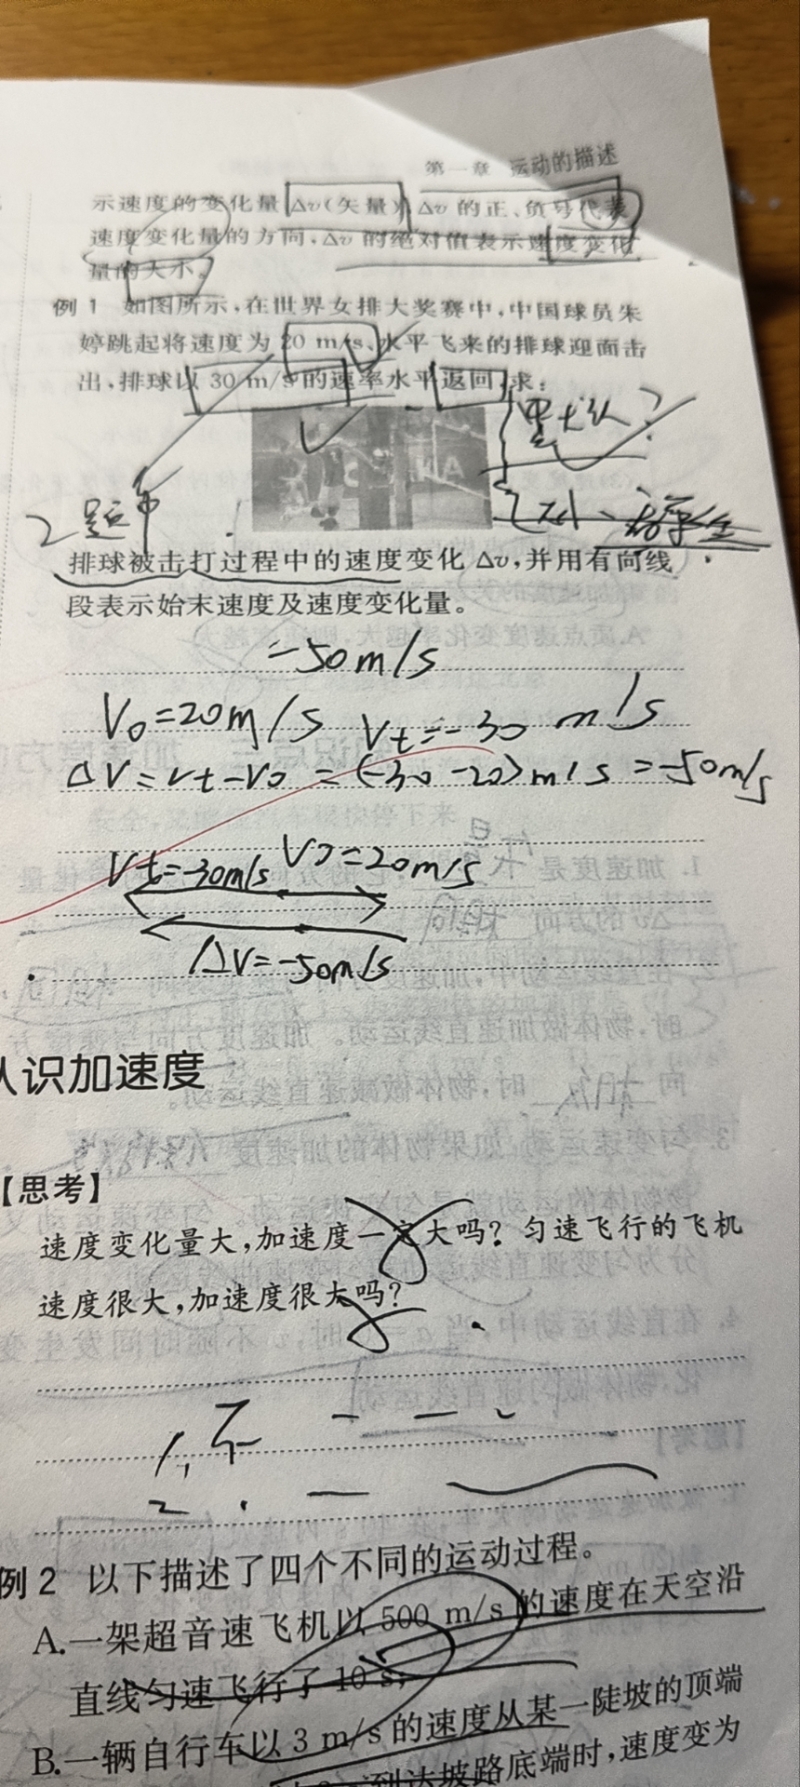 第一章 运动的描述
示速度的变化量Δv(矢量),Δv 的正、负号代表
速度变化量的方向,Δv 的绝对值表示速度变化
量的大小。
例 1 如图所示,在世界女排大奖赛中,中国球员朱
婷跳起将速度为 20 m/s、水平飞来的排球迎面击
出,排球以 30 m/s的速率水平返回,求:
排球被击打过程中的速度变化 Δv,并用有向线
段表示始末速度及速度变化量。
=-50m/s
V₀=20m/s Vt=-30 m/s
ΔV=Vt-V₀=(-30-20)m/s=-50m/s
Vt=-30m/s V₀=20m/s
ΔV=-50m/s
认识加速度
【思考】
速度变化量大,加速度一定大吗?匀速飞行的飞机
速度很大,加速度很大吗?
1.不
2.
例 2 以下描述了四个不同的运动过程。
A.一架超音速飞机以 500 m/s 的速度在天空沿
直线匀速飞行了 10 s;
B.一辆自行车以 3 m/s 的速度从某一陡坡的顶端
到达坡路底端时,速度变为